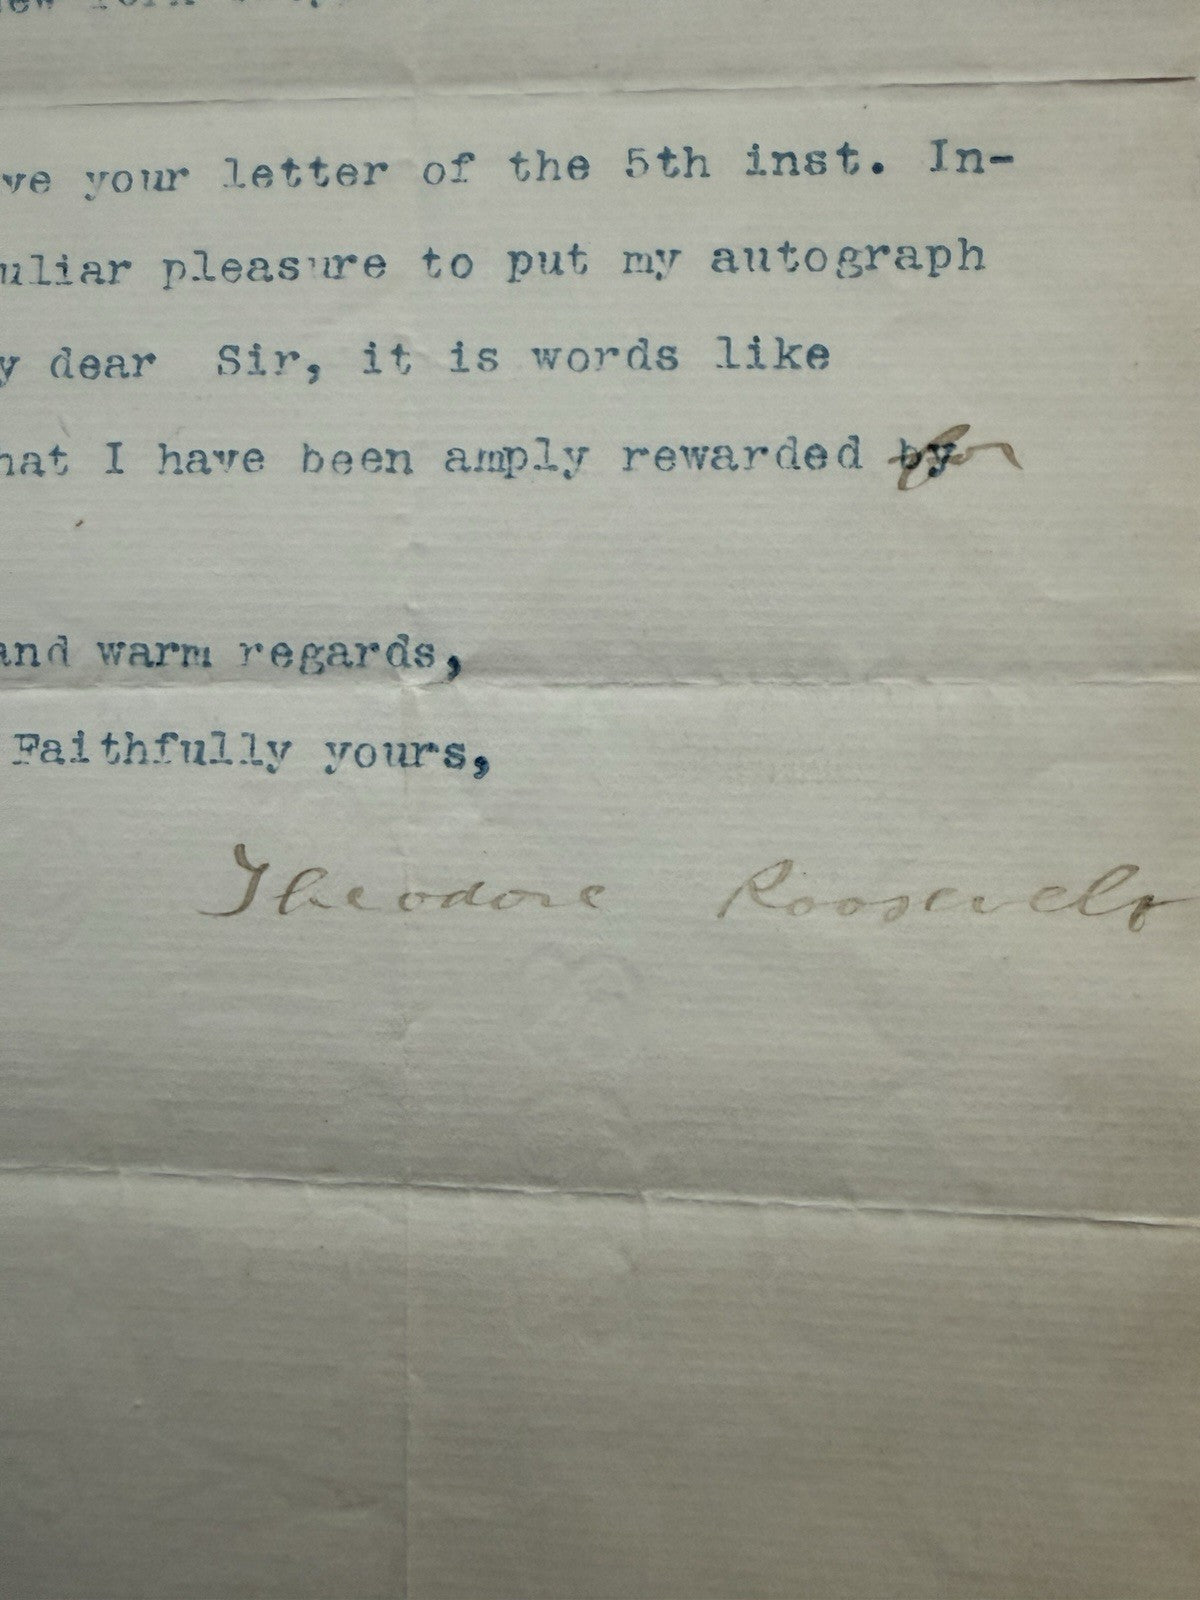 ve your letter of the 5th inst. In-
uliar pleasure to put my autograph
y dear Sir, it is words like
hat I have been amply rewarded by for
and warm regards,
Faithfully yours,
Theodore Roosevelt